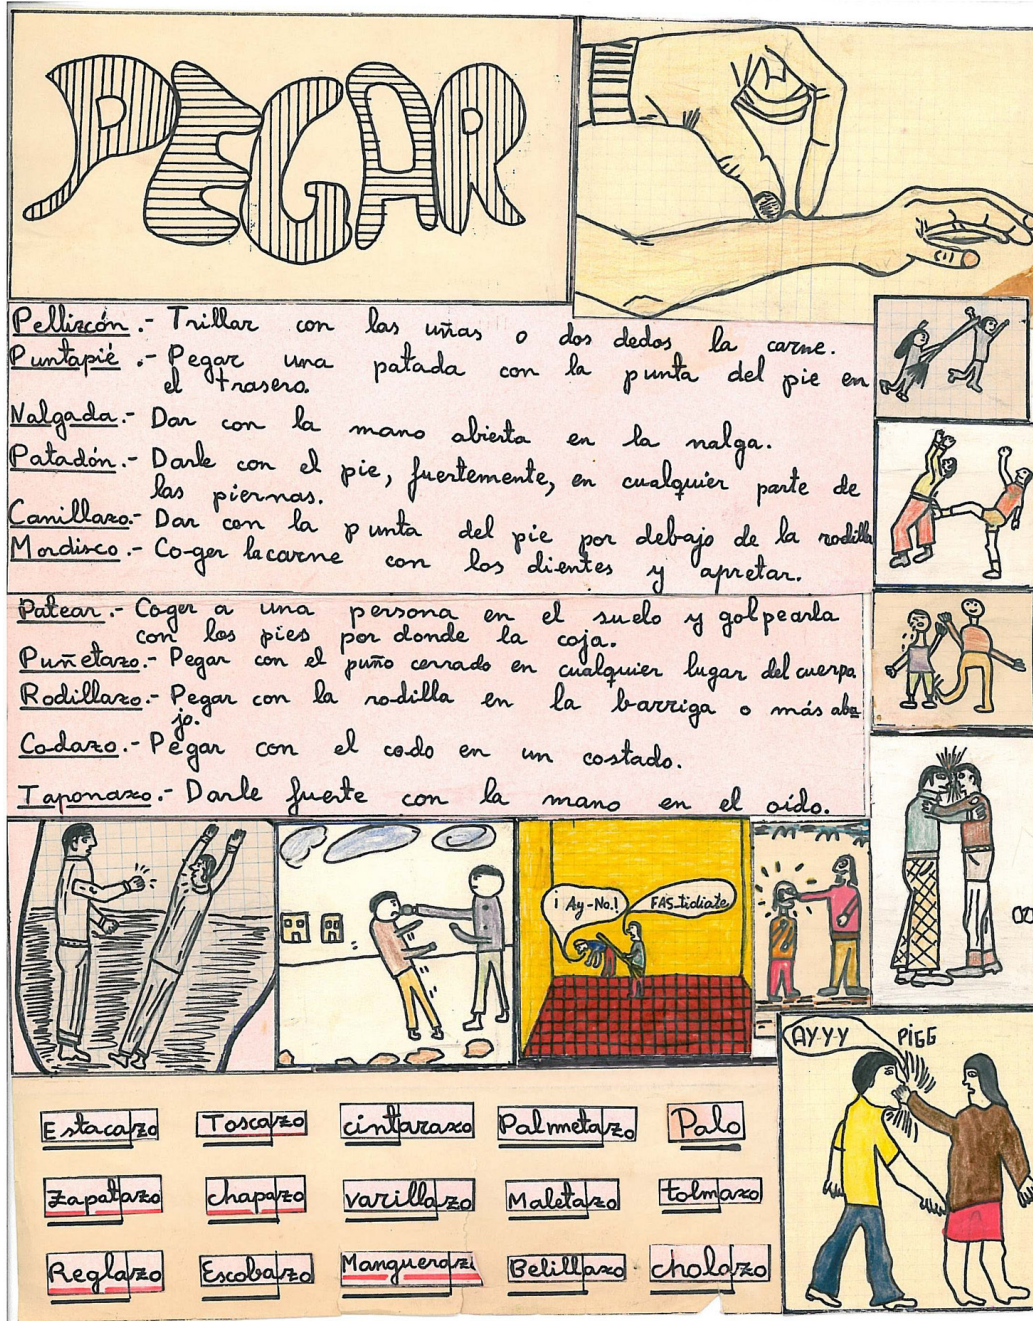 PEGAR
Pellizcón.- Trillar con las uñas o dos dedos la carne.
Puntapié.- Pegar una patada con la punta del pie en
el trasero.
Nalgada.- Dar con la mano abierta en la nalga.
Patadón.- Darle con el pie, fuertemente, en cualquier parte de
las piernas.
Canillazo.- Dar con la punta del pie por debajo de la rodilla
Mordisco.- Co-ger la carne con los dientes y apretar.
Patear.- Coger a una persona en el suelo y golpearla
con los pies por donde la coja.
Puñetazo.- Pegar con el puño cerrado en cualquier lugar del cuerpo
Rodillazo.- Pegar con la rodilla en la barriga o más aba
jo.
Codazo.- Pegar con el codo en un costado.
Taponazo.- Darle fuerte con la mano en el oído.
¡Ay-No.!
FAS-tidiate
AY-Y-Y PiGG
Estacazo Toscazo cintarazo Palmetazo Palo
Zapatazo chapazo varillazo Maletazo tolmazo
Reglazo Escobazo Manguerazo Belillazo cholazo